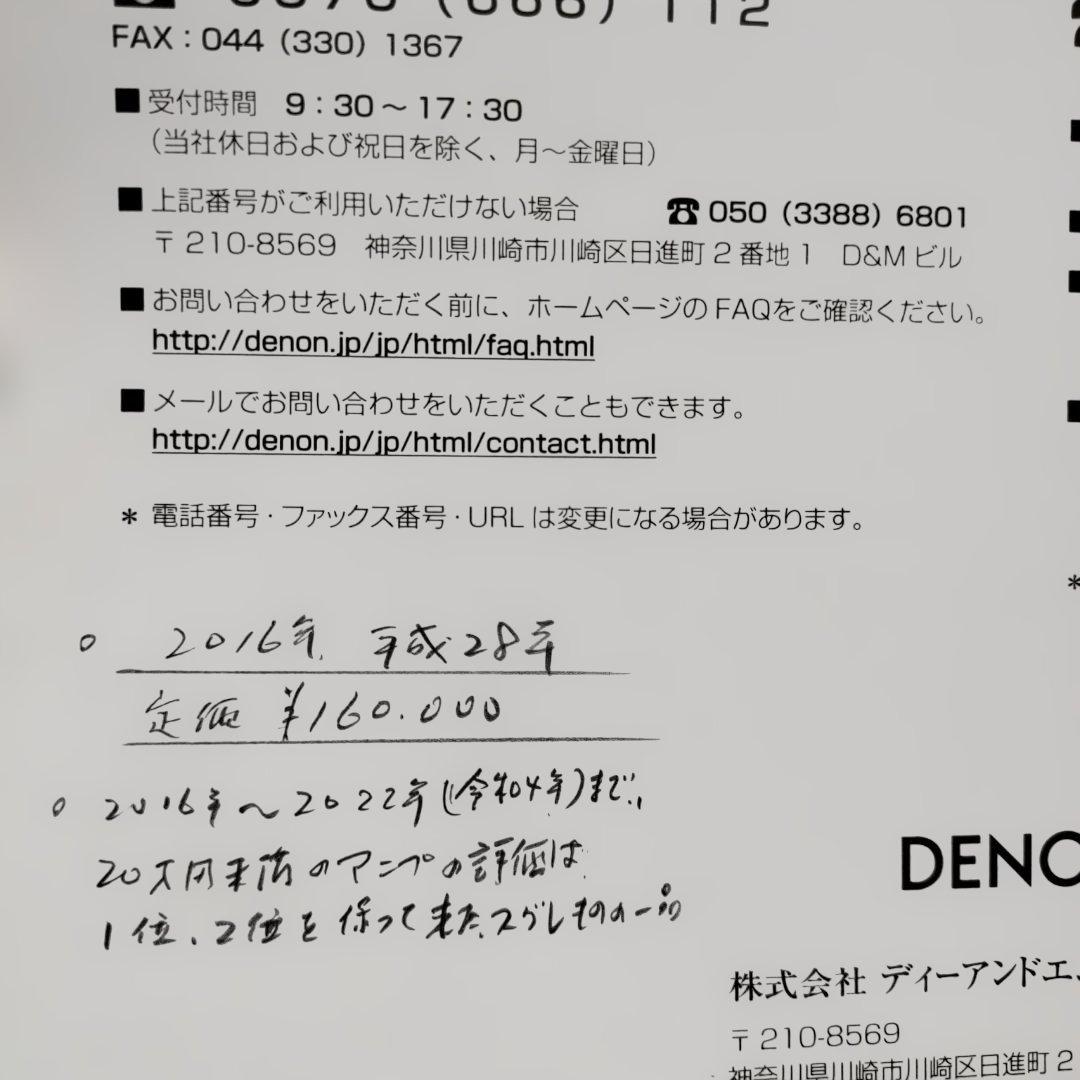 FAX：044（330）1367
■ 受付時間　9：30～17：30
（当社休日および祝日を除く、月～金曜日）
■ 上記番号がご利用いただけない場合　☎ 050（3388）6801
〒210-8569　神奈川県川崎市川崎区日進町2番地1　D&Mビル
■ お問い合わせをいただく前に、ホームページのFAQをご確認ください。
http://denon.jp/jp/html/faq.html
■ メールでお問い合わせをいただくこともできます。
http://denon.jp/jp/html/contact.html
＊ 電話番号・ファックス番号・URLは変更になる場合があります。
○ 2016年. 平成28年
定価 ¥160.000
○ 2016年～2022年(令和4年)まで、
20万円未満のアンプの評価は
1位、2位を保って来た、スグレものの一品
DENO
株式会社 ディーアンドエ
〒210-8569
神奈川県川崎市川崎区日進町2